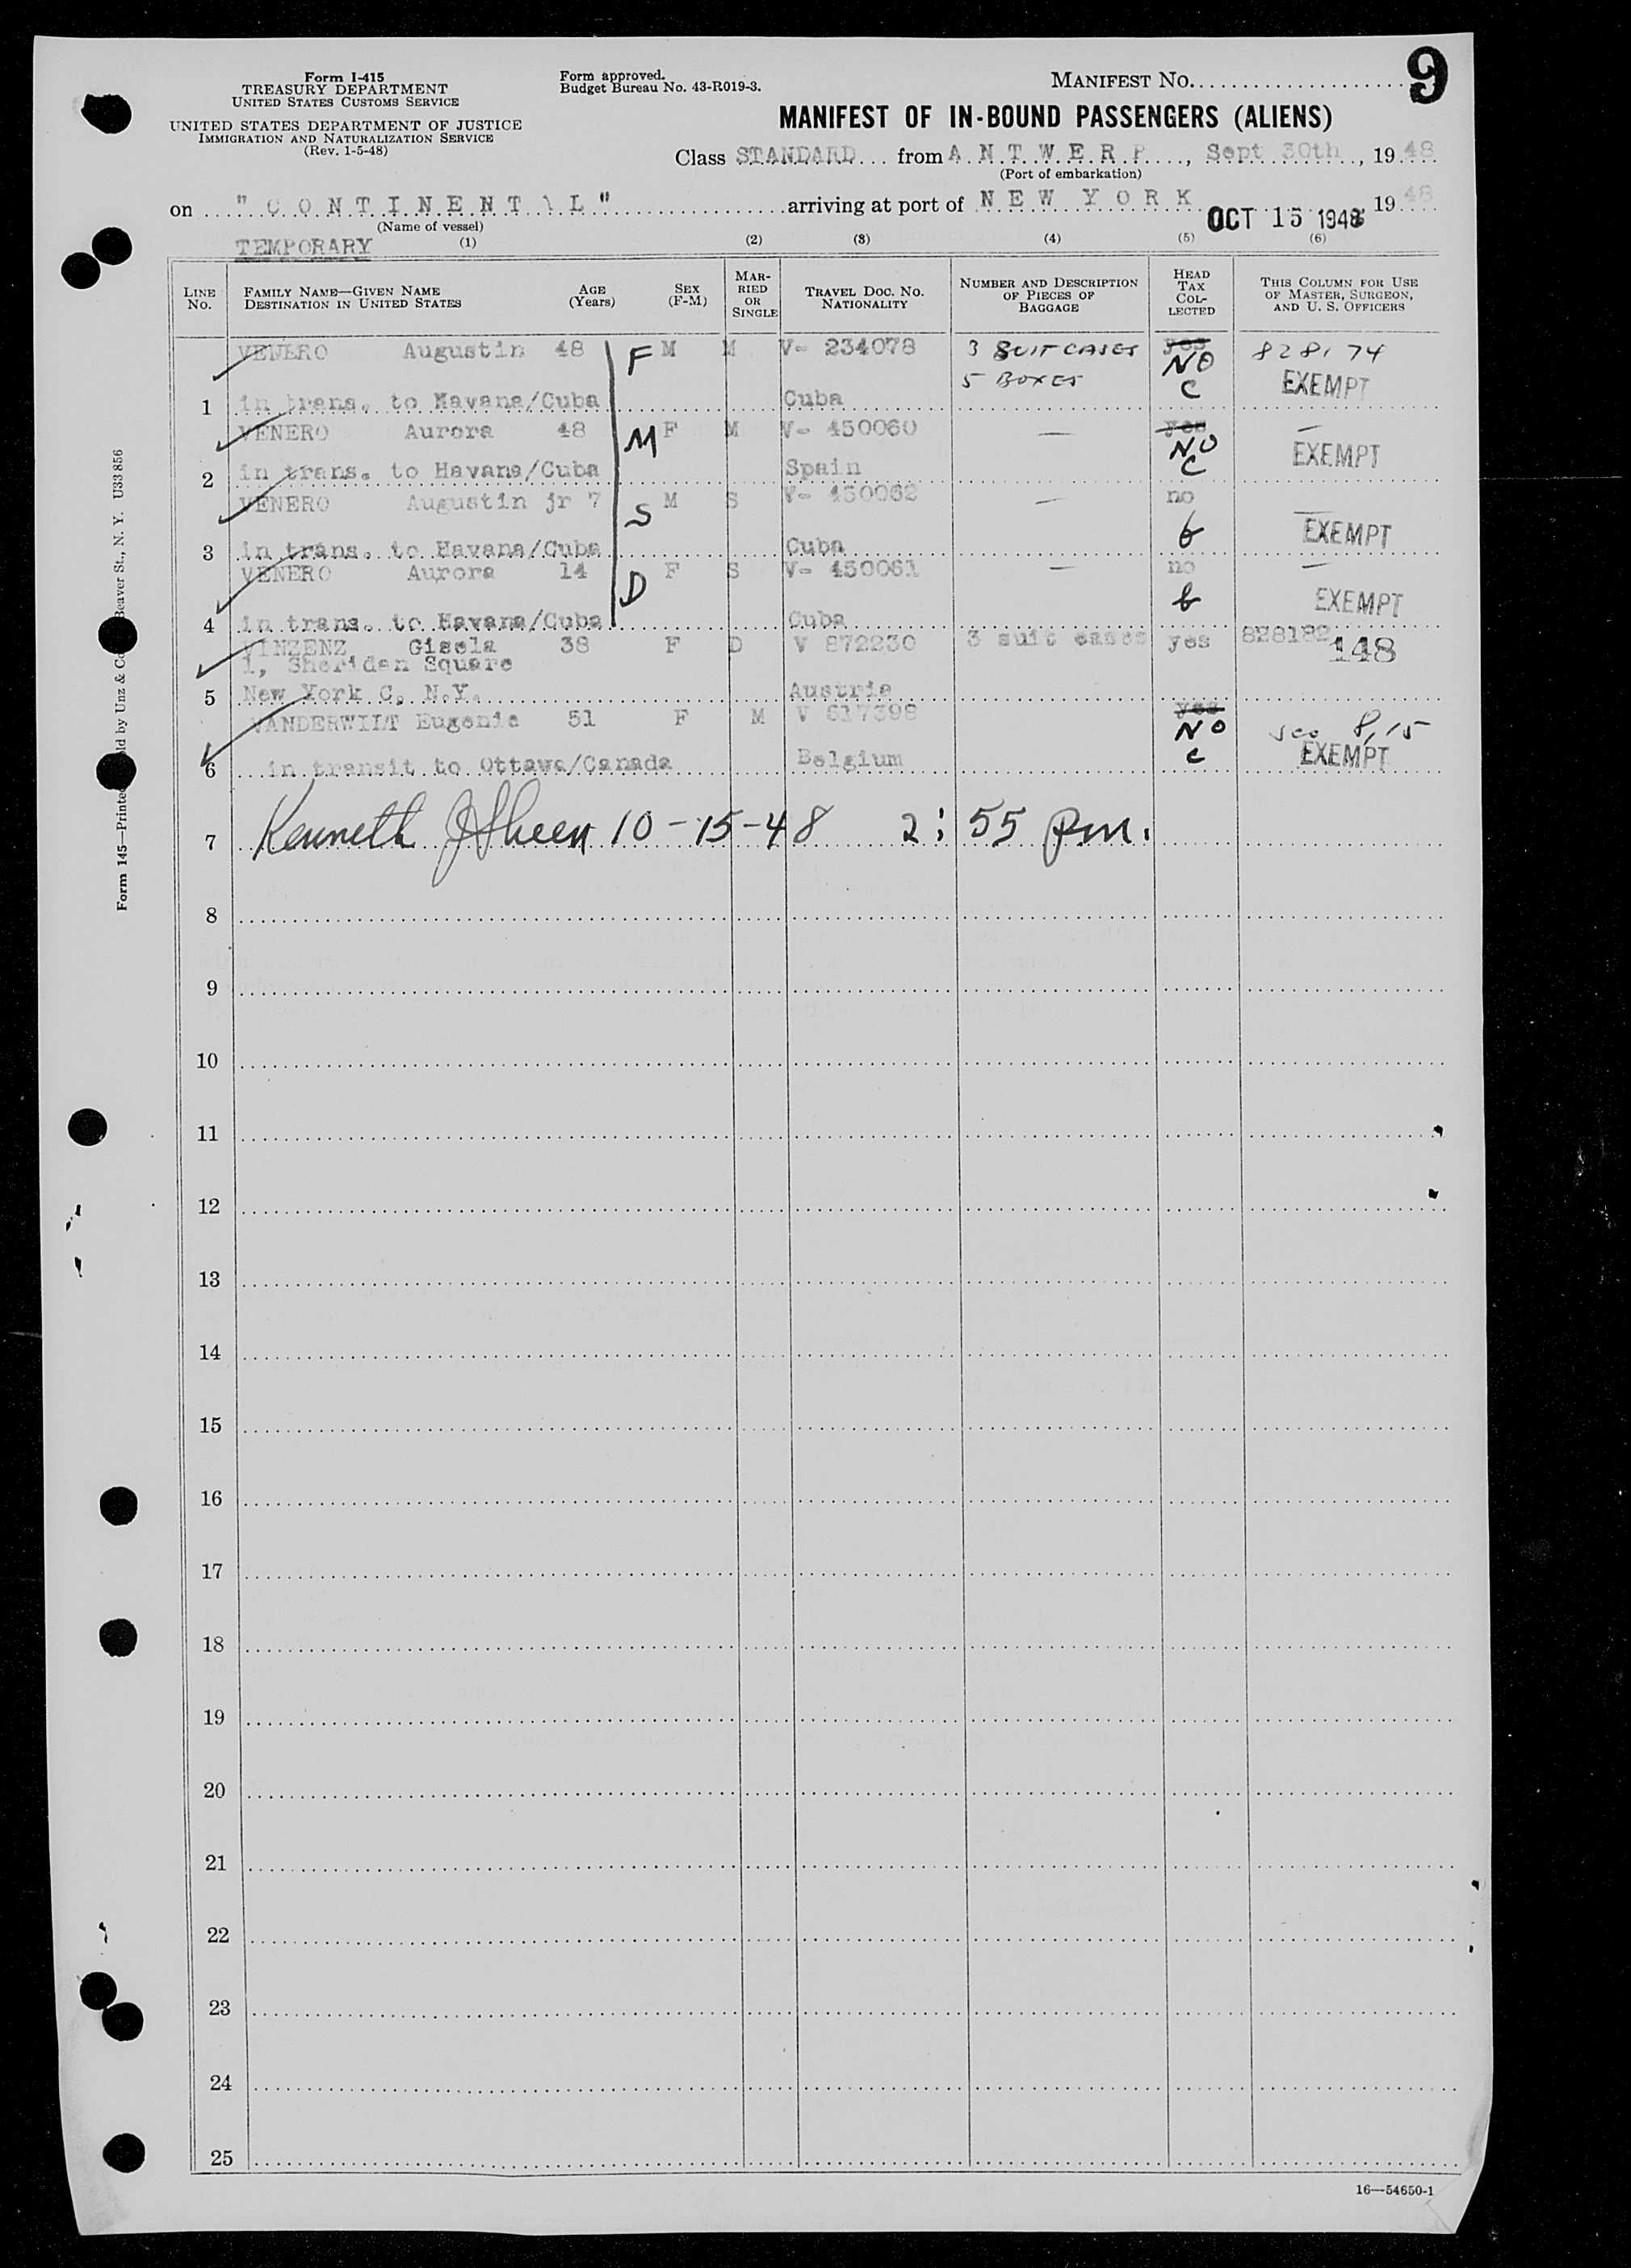 9
Form I-415
TREASURY DEPARTMENT
UNITED STATES CUSTOMS SERVICE
UNITED STATES DEPARTMENT OF JUSTICE
IMMIGRATION AND NATURALIZATION SERVICE
(Rev. 1-5-48)
Form approved.
Budget Bureau No. 43-R019-3.
MANIFEST NO.
MANIFEST OF IN-BOUND PASSENGERS (ALIENS)
Class STANDARD from ANTWERP, Sept 30th, 19 48
(Port of embarkation)
on "CONTINENTAL" arriving at port of NEW YORK OCT 15 1948, 19 48
(Name of vessel)
TEMPORARY
(1) (2) (3) (4) (5) (6)
LINE No. FAMILY NAME—GIVEN NAME DESTINATION IN UNITED STATES AGE (Years) SEX (F-M) MARRIED OR SINGLE TRAVEL DOC. NO. NATIONALITY NUMBER AND DESCRIPTION OF PIECES OF BAGGAGE HEAD TAX COLLECTED THIS COLUMN FOR USE OF MASTER, SURGEON, AND U. S. OFFICERS
VENERO Augustin 48 F M M V- 234078 3 SUITCASES yes 828174
5 BOXES NO C EXEMPT
1 in trans. to Havana/Cuba Cuba
VENERO Aurora 48 M F M V- 450060 — yes —
NO C EXEMPT
2 in trans. to Havana/Cuba Spain
VENERO Augustin jr 7 S M S V- 450062 — no —
EXEMPT
3 in trans. to Havana/Cuba Cuba
VENERO Aurora 14 D F S V- 450061 — no —
EXEMPT
4 in trans. to Havana/Cuba Cuba
VINZENZ Gisela 38 F D V 872230 3 suit cases yes 828182
1, Sheridan Square 148
5 New York C, N.Y. Austria
VANDERWILT Eugenie 51 F M V 617398 yes
NO C 8,15
EXEMPT
6 in transit to Ottawa/Canada Belgium
7 Kenneth J Sheen 10-15-48 2:55 pm.
8
9
10
11
12
13
14
15
16
17
18
19
20
21
22
23
24
25
16—54650-1
Form 145—Printed Beaver St., N. Y. U33856